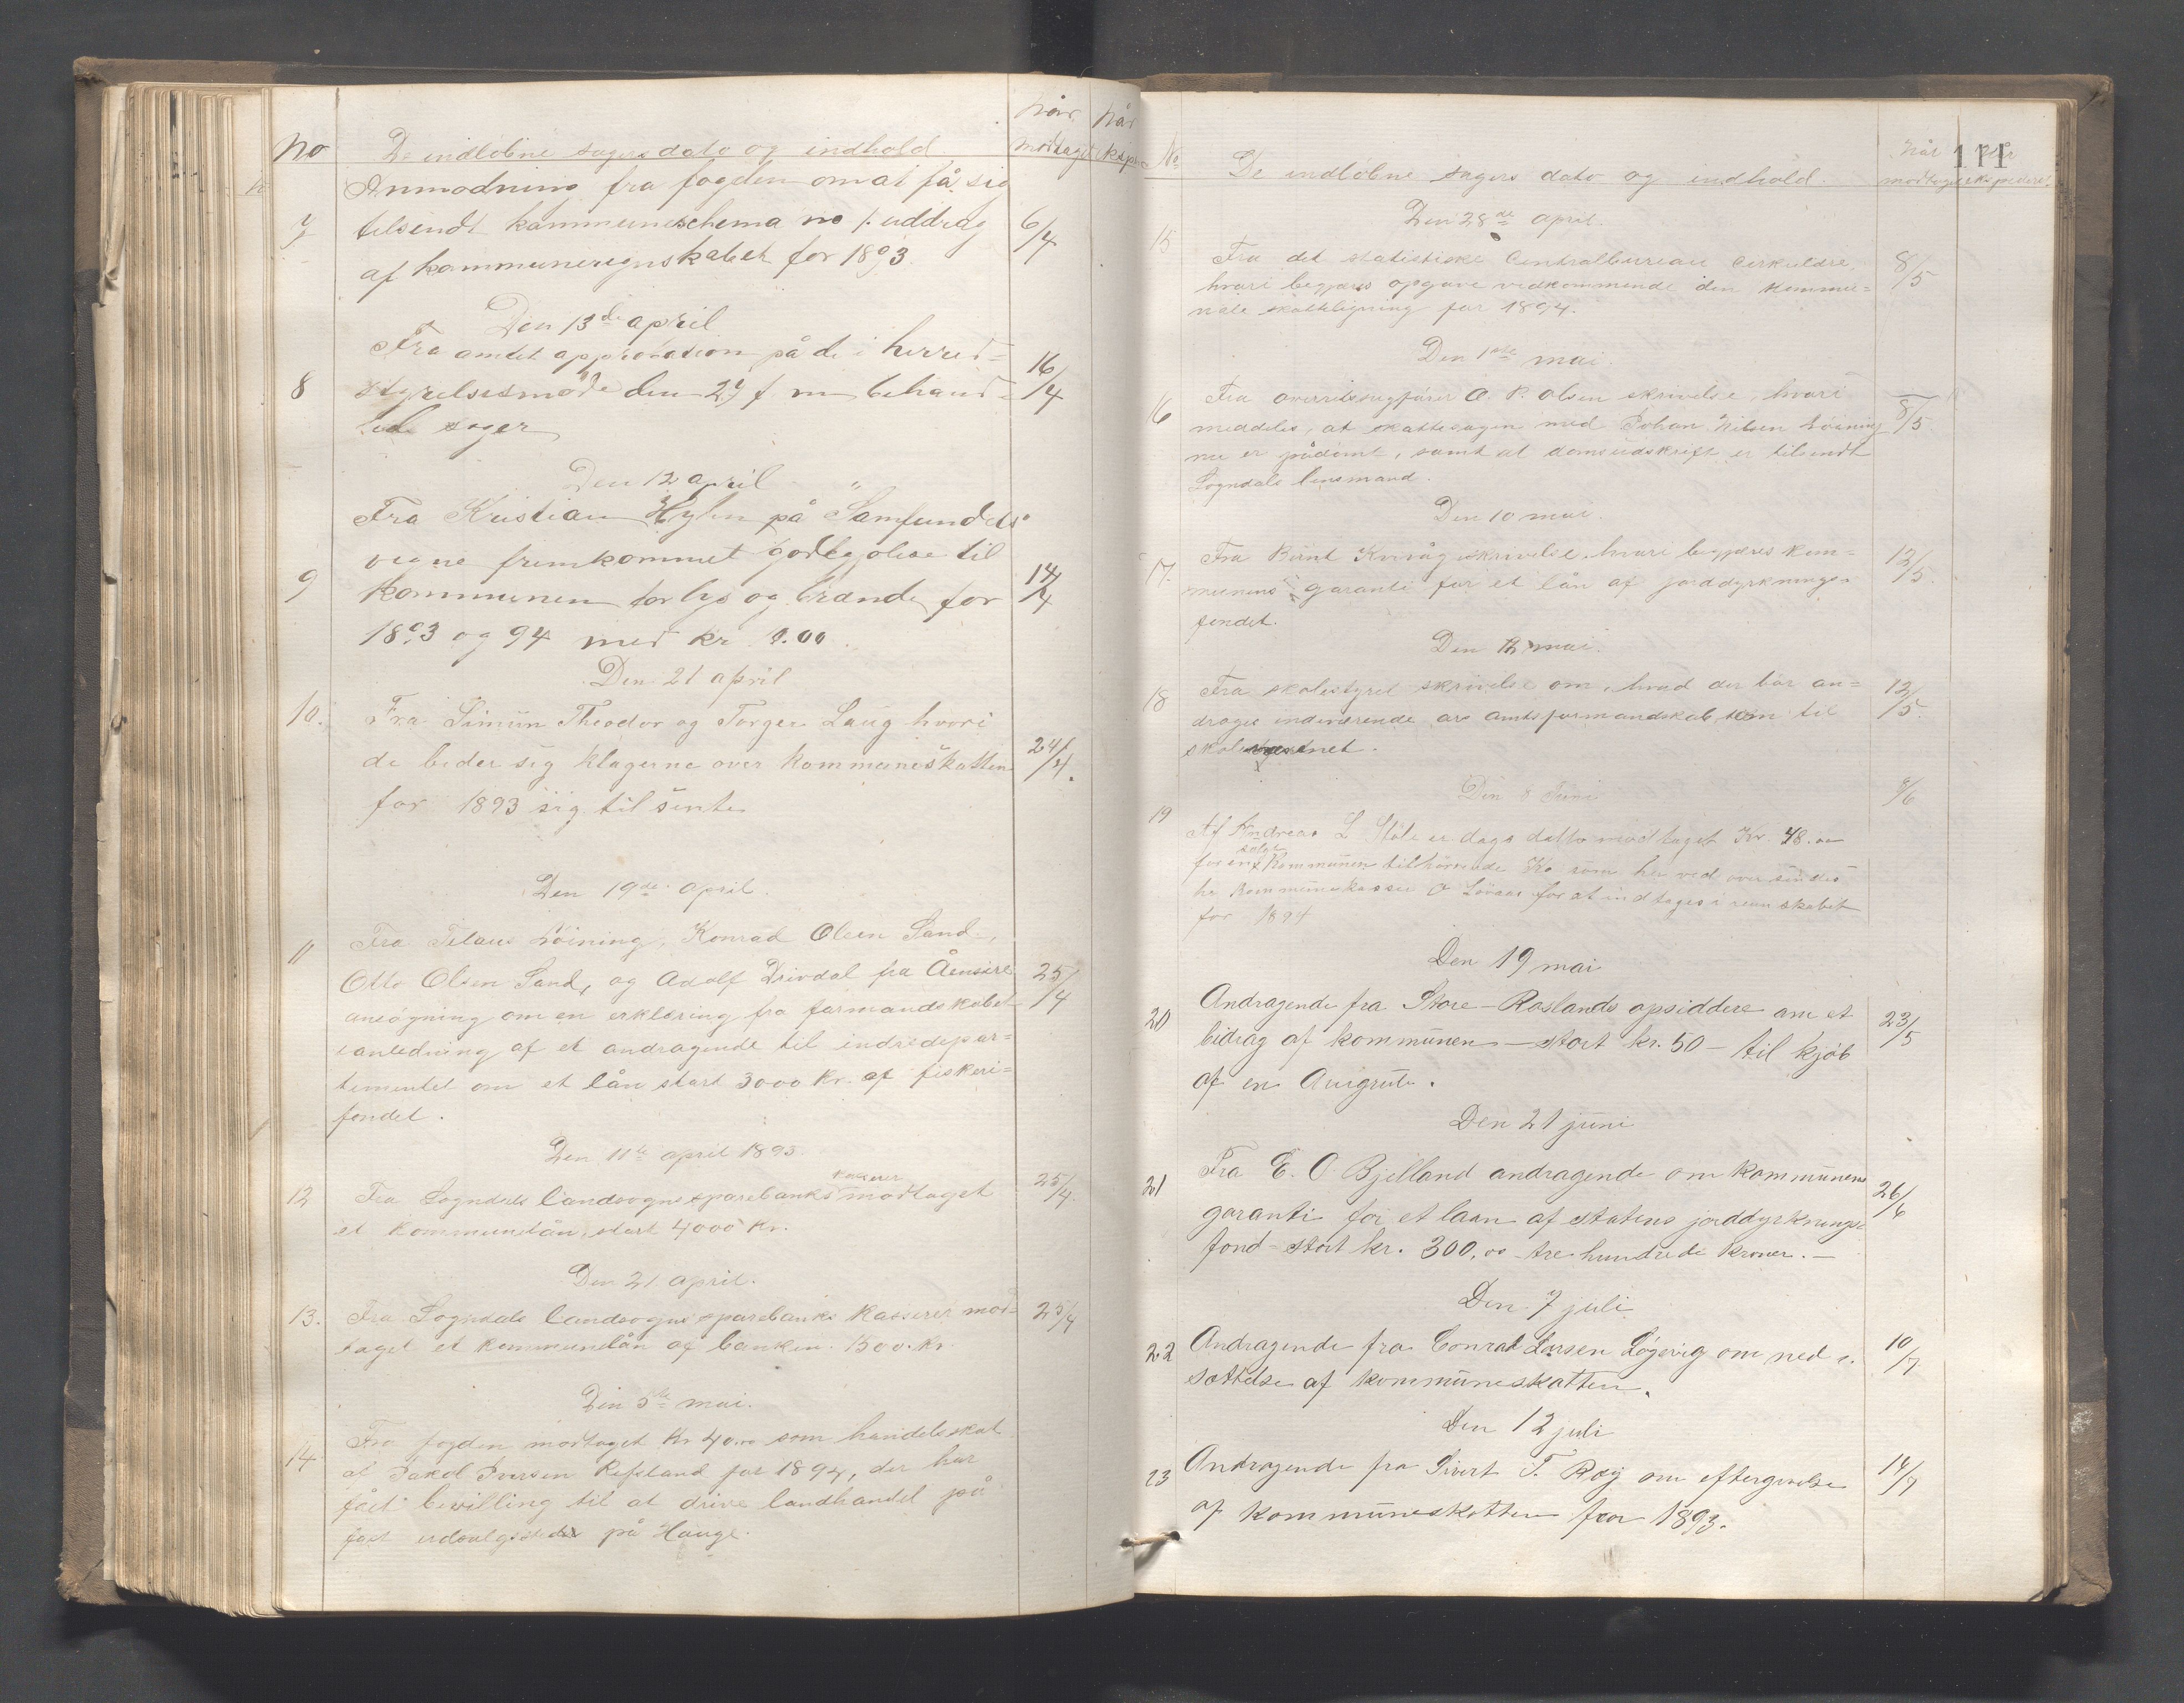 No De indlöbne sagers dato og indhold Når modtaget Når eksp.
Anmodning fra fogden om at få sig
7 tilsendt kommuneschema no 1. uddrag 6/4
af kommuneregnskabet for 1893.
Den 13de april
Fra amtet approbation på de i herred=
8 styrelsesmøde den 27 f m behand= 16/4
lede sager
Den 12 april
Fra Kristian Hylen på Samfundets
vegne fremkommet godtgjølese til
9 kommunen for lys og brænde for 14/4
1893 og 94 med kr .00.
Den 21 april
10. Fra Simün Theodor og Torger Laug hvori
de beder sig klagerne over kommuneskatten 24/4.
for 1893 sig til sente
Den 19de april.
11 Fra Tilaus Löining, Konrad Olsen Sand,
Otto Olsen Sand, og Adolf Drivdal fra Åensire 25/4
ansögning om en erklæring fra formandskabet
i anledning af et andragende til indredepar=
tementet om et lån stort 3000 kr. af fiskeri=
fondet.
Den 11te april 1893.
kasserer
12 Fra Sogndals landsogns sparebanks modtaget 25/4.
et kommunelån, stort 4000 kr.
Den 21. april.
13. Fra Sogndals landsogns sparebanks kasserer mod= 25/4
taget et kommunelån af banken. 1500. kr.
Den 5te mai.
Fra fogden modtaget kr 40.00 som handelsskat
14 af Jakob Iversen Refsland for 1894, der har
fået bevilling til at drive landhandel på
fast udsalgsted på Hauge.
111
No De indlöbne sagers dato og indhold. Når modtaget Når ekspederet.
Den 28de april.
15 Fra det statistiske Centralbureau cirkulære, 8/5
hvori begjæres opgave vedkommende den kommu=
nale skatteligning for 1894.
Den 1ste mai.
Fra overretssagfører O. P. Olsen skrivelse, hvori
16 meddeles, at skattesagen med Johan Nilsen Löining 8/5
nu er pådömt, samt at domsudskrift er tilsendt
Sogndals lensmand.
Den 10 mai.
17. Fra Bernt Kvivåg skrivelse. hvori begjæres kom= 12/5.
munens garanti for et lån af jorddyrknings=
fondet.
Den 12 mai.
18 Fra skolestyret skrivelse om, hvad der bör an= 12/5.
drages indeværende års amtsformandskab om til
skolevæsenet.
Den 8 Juni 8/6
19 Af Andreas L Stöle er dags datto modtaget Kr. 48.00
solgt
for en kommunen tilhörende Ko som herved oversendes
hr kommunekasser O Lövaas for at indtages i regnskabet
for 1894
Den 19 mai
20 Andragende fra Store-Roslands opsiddere om et 23/5
bidrag af kommunen - stort kr. 50 - til kjöb
af en
Den 21 juni
21 Fra E. O Bjelland andragende om kommunens 26/6
garanti for et laan af statens jorddyrknings=
fond - stort kr. 300,00 tre hundrede kroner. -
Den 7 juli
22 Andragende fra Conrad Larsen Løgevig om ned= 10/7.
sættelse af kommuneskatten.
Den 12 juli
23 Andragende fra Sivert T. Røg om eftergivelse 14/7
af kommuneskatten for 1893.